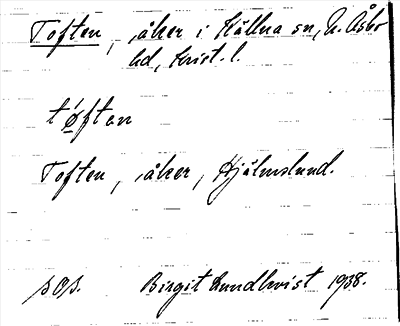 Toften, åker i Källna sn, N. Åsbo
hd, Krist. l.
tøften
Toften, åker, Hjälmslund.
sOs. Birgit Lundkvist 1938.